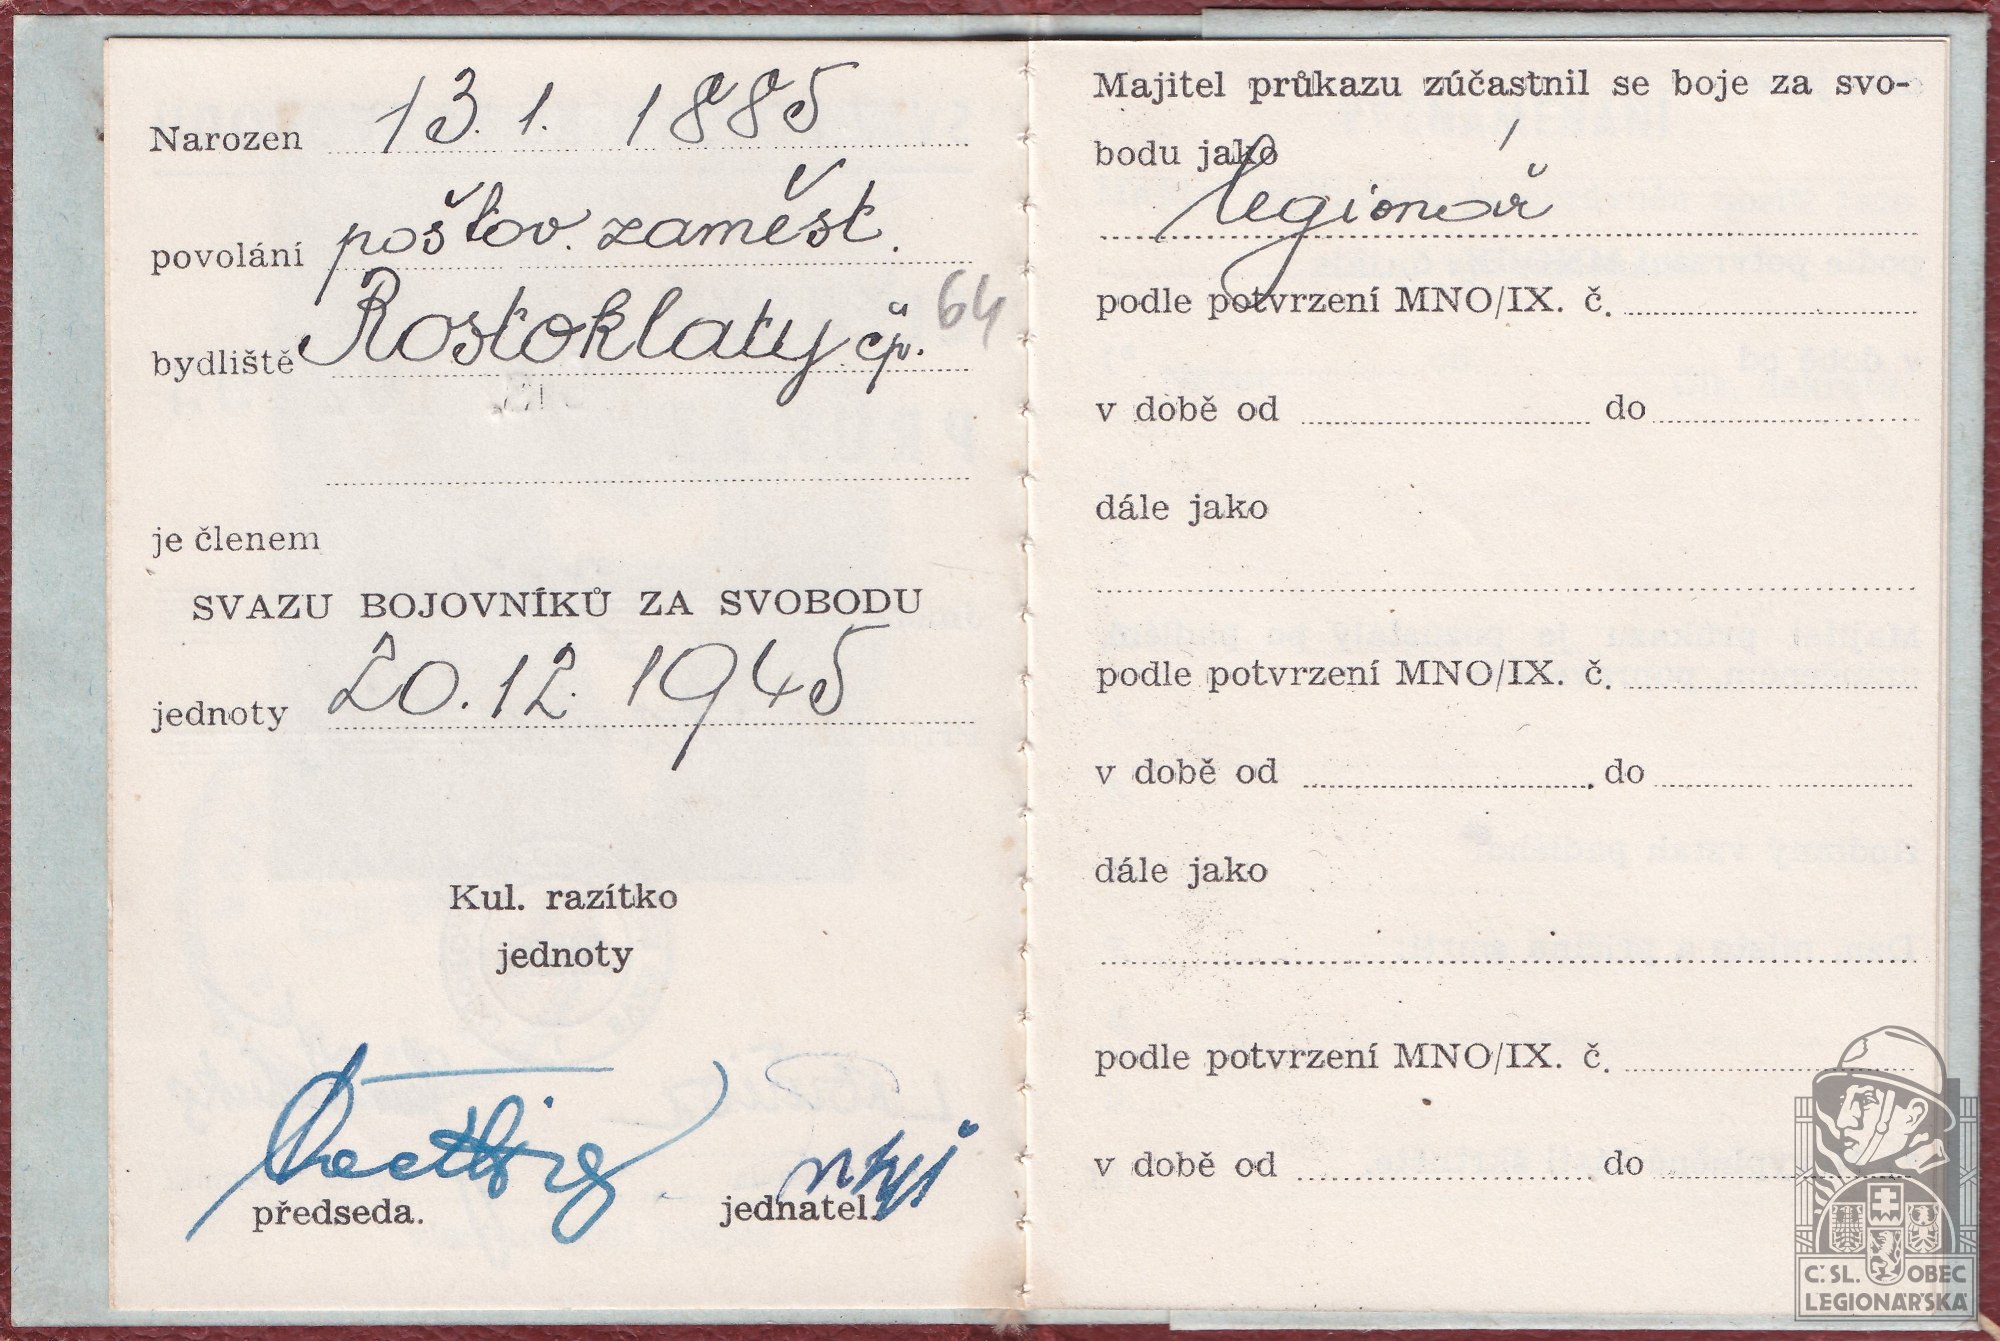 Narozen 13. 1. 1885
povolání poštov. zaměst.
bydliště Rostoklaty čp. 64
je členem
SVAZU BOJOVNÍKŮ ZA SVOBODU
jednoty 20. 12. 1945
Kul. razítko
jednoty
předseda. jednatel.
Majitel průkazu zúčastnil se boje za svo-
bodu jako
legionář
podle potvrzení MNO/IX. č.
v době od do
dále jako
podle potvrzení MNO/IX. č.
v době od do
dále jako
podle potvrzení MNO/IX. č.
v době od do
Č. SL. OBEC
LEGIONÁŘSKÁ